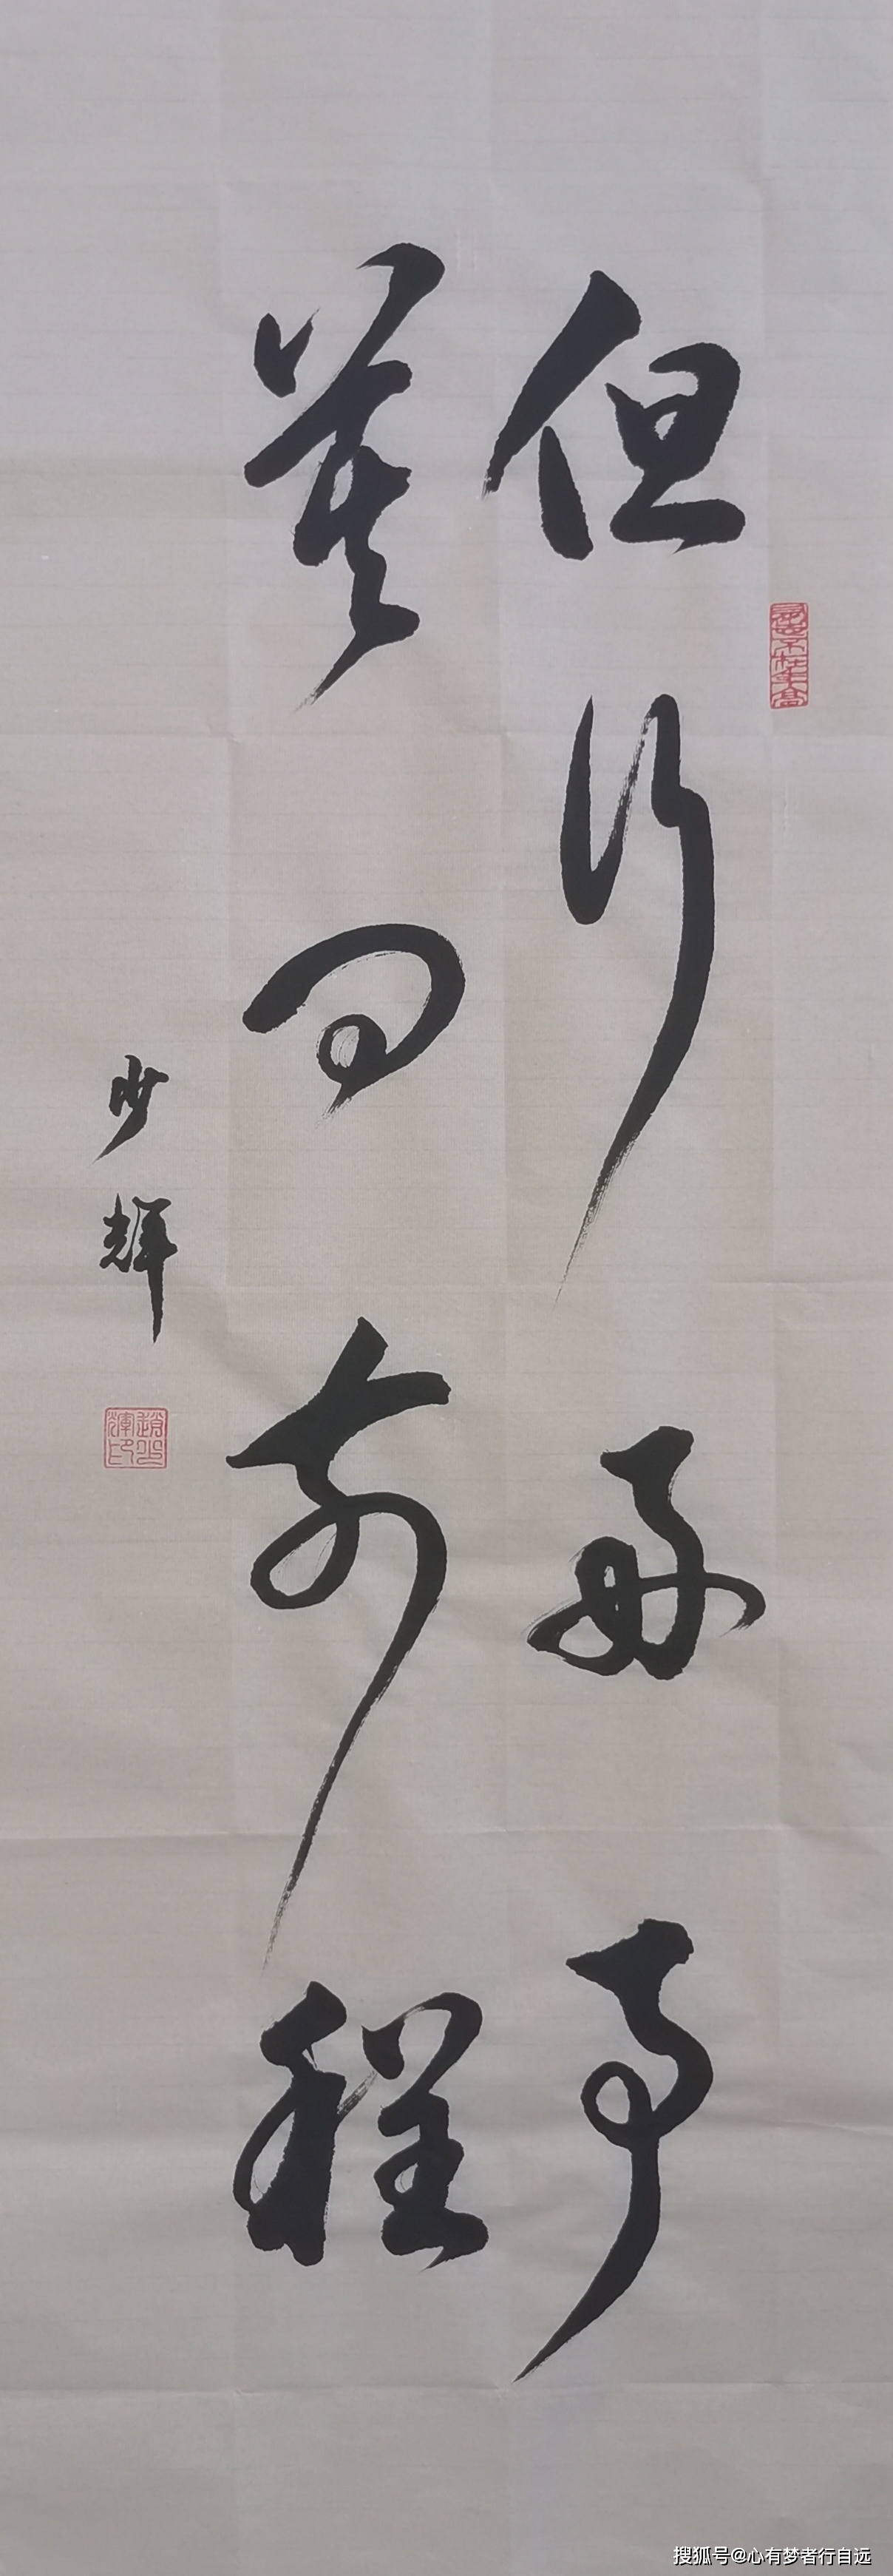 但行好事
莫问前程
少輝
搜狐号@心有梦者行自远